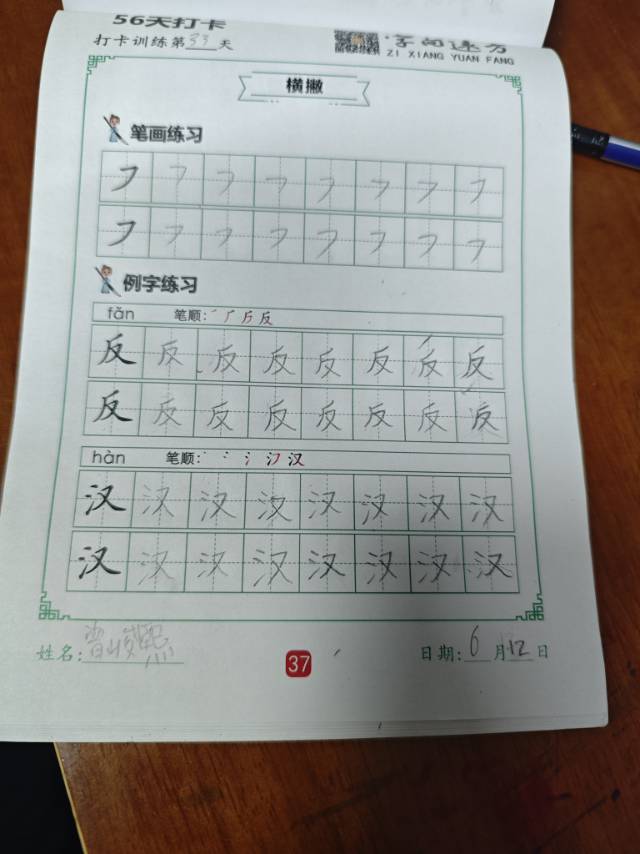 56天打卡
打卡训练第33天
字向速方
ZI XIANG YUAN FANG
横撇
笔画练习
例字练习
fǎn 笔顺:
反 反 反 反 反 反 反 反
反 反 反 反 反 反 反 反
hàn 笔顺:
汉 汉 汉 汉 汉 汉 汉 汉
汉 汉 汉 汉 汉 汉 汉 汉
姓名:
37
日期:6月12日